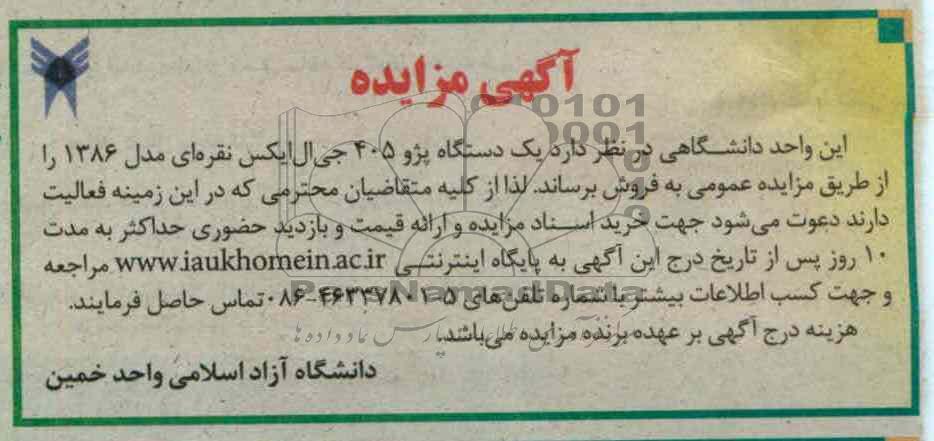 آگهی مزایده
این واحد دانشگاهی در نظر دارد یک دستگاه پژو ۴۰۵ جی‌ال‌ایکس نقره‌ای مدل ۱۳۸۶ را
از طریق مزایده عمومی به فروش برساند. لذا از کلیه متقاضیان محترمی که در این زمینه فعالیت
دارند دعوت می‌شود جهت خرید اسناد مزایده و ارائه قیمت و بازدید حضوری حداکثر به مدت
۱۰ روز پس از تاریخ درج این آگهی به پایگاه اینترنتی www.iaukhomein.ac.ir مراجعه
و جهت کسب اطلاعات بیشتر با شماره تلفن‌های ۵-۴۶۳۴۷۸۰۱-۰۸۶ تماس حاصل فرمایند.
هزینه درج آگهی بر عهده برنده مزایده می‌باشد.
دانشگاه آزاد اسلامی واحد خمین
ParsNamadData